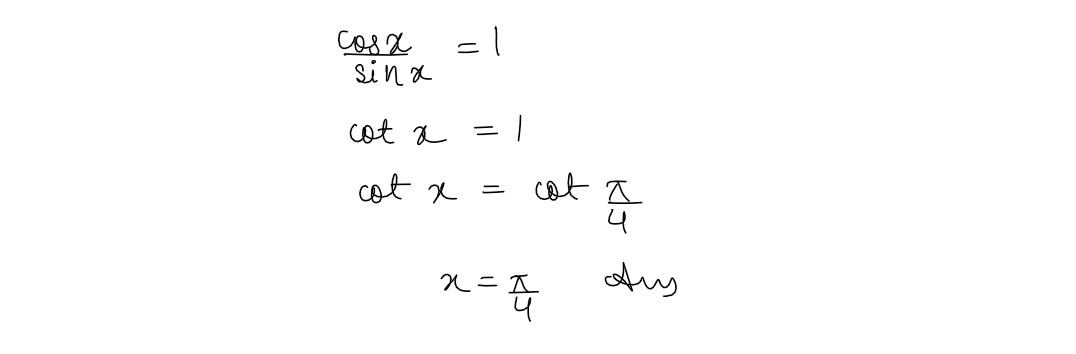 cos x / sin x = 1
cot x = 1
cot x = cot π/4
x = π/4 Ans